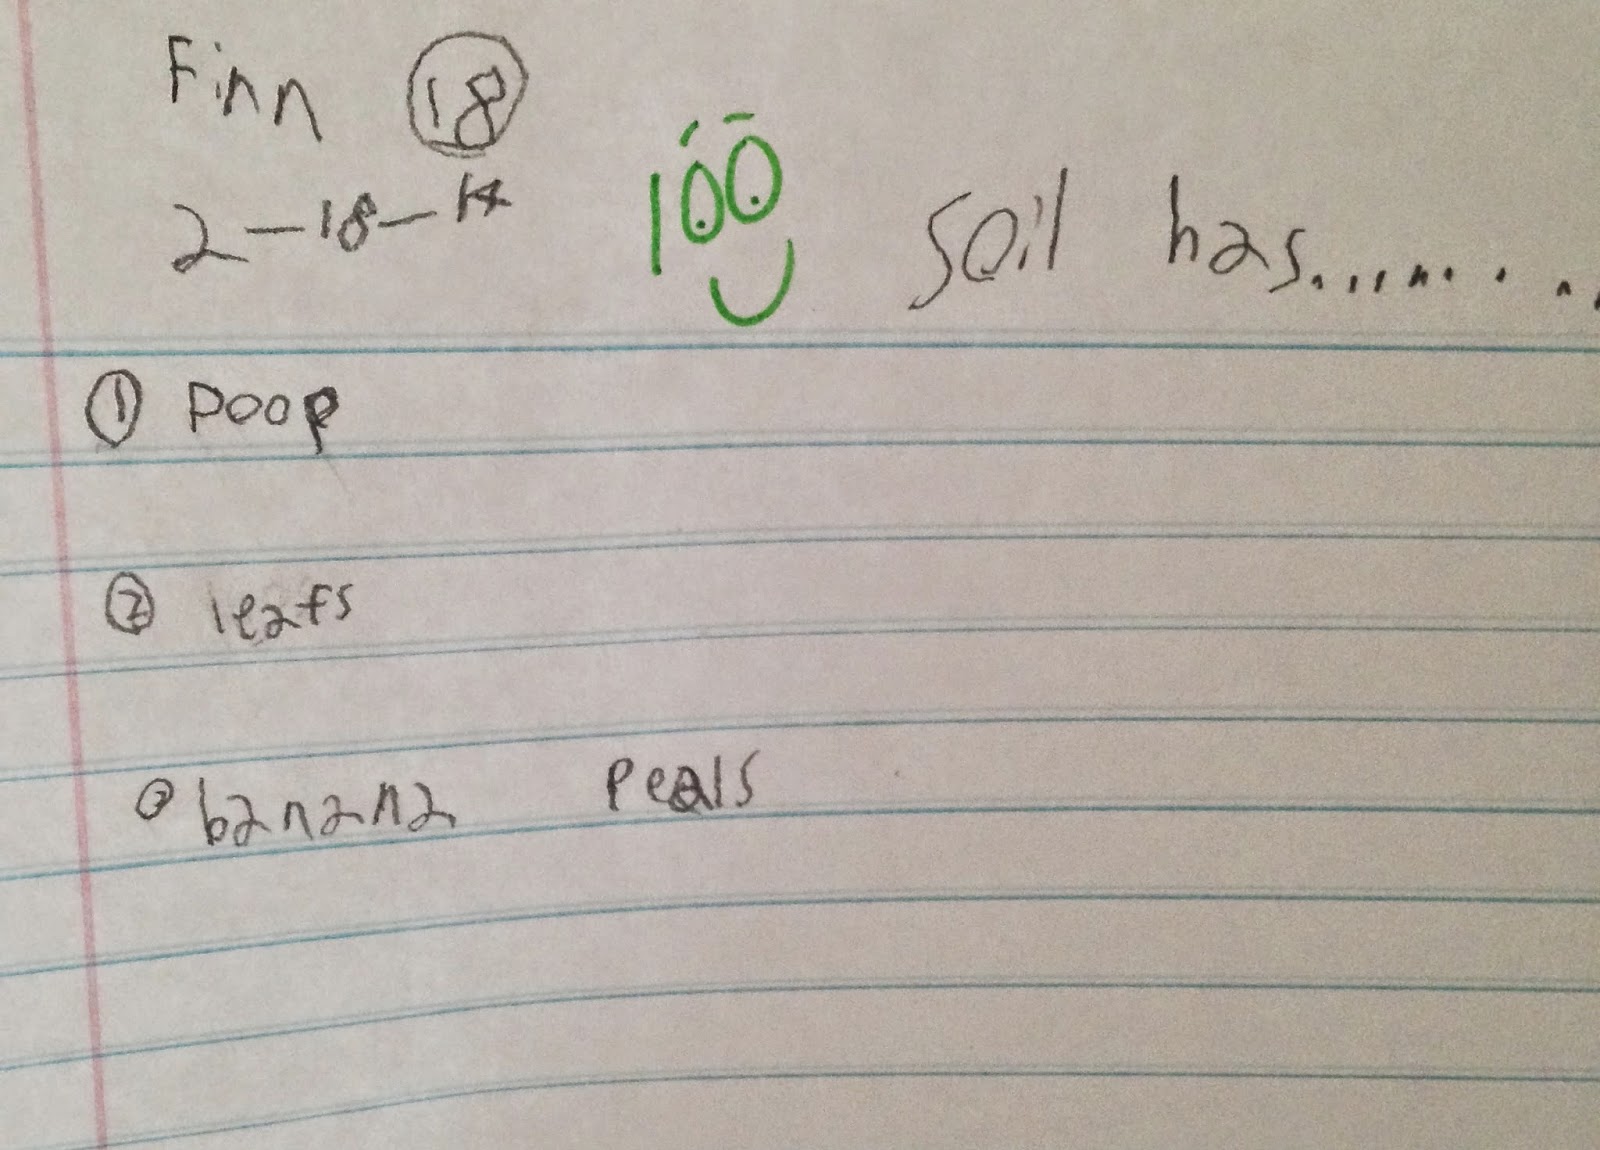 Finn 18
2-18-14
100
soil has..........
1 poop
2 leafs
3 banana peals